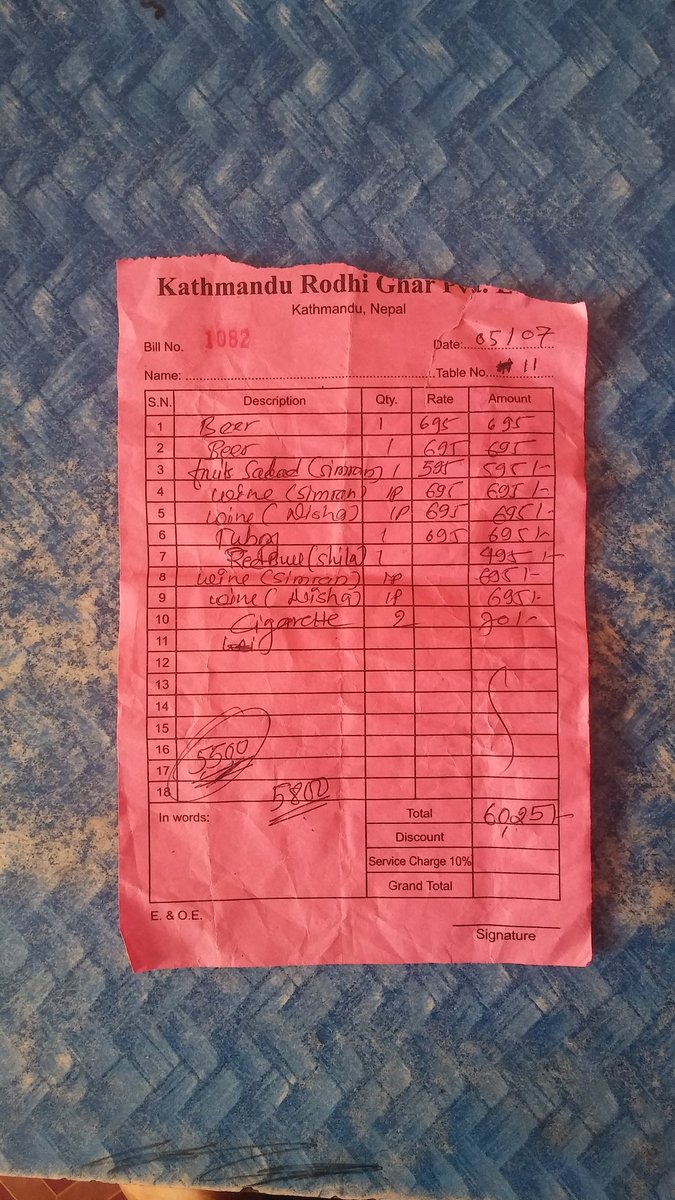 Kathmandu Rodhi Ghar Pvt.
Kathmandu, Nepal
Bill No. 1082 Date: 05/07
Name: Table No. 11
S.N. Description Qty. Rate Amount
1 Beer 1 695 695
2 Beer 1 695 695
3 fruit Salad (simran) 1 595 595/-
4 wine (simran) 1P 695 695/-
5 wine (Nisha) 1P 695 695/-
6 Tuborg 1 695 695/-
7 Redbull (shila) 1 495/-
8 wine (simran) 1P 695/-
9 wine (Nisha) 1P 695/-
10 Cigarette 2 70/-
11
12
13
14
15
16 5500
17
18 5800
In words: Total 6025/-
Discount
Service Charge 10%
Grand Total
E. & O.E.
Signature